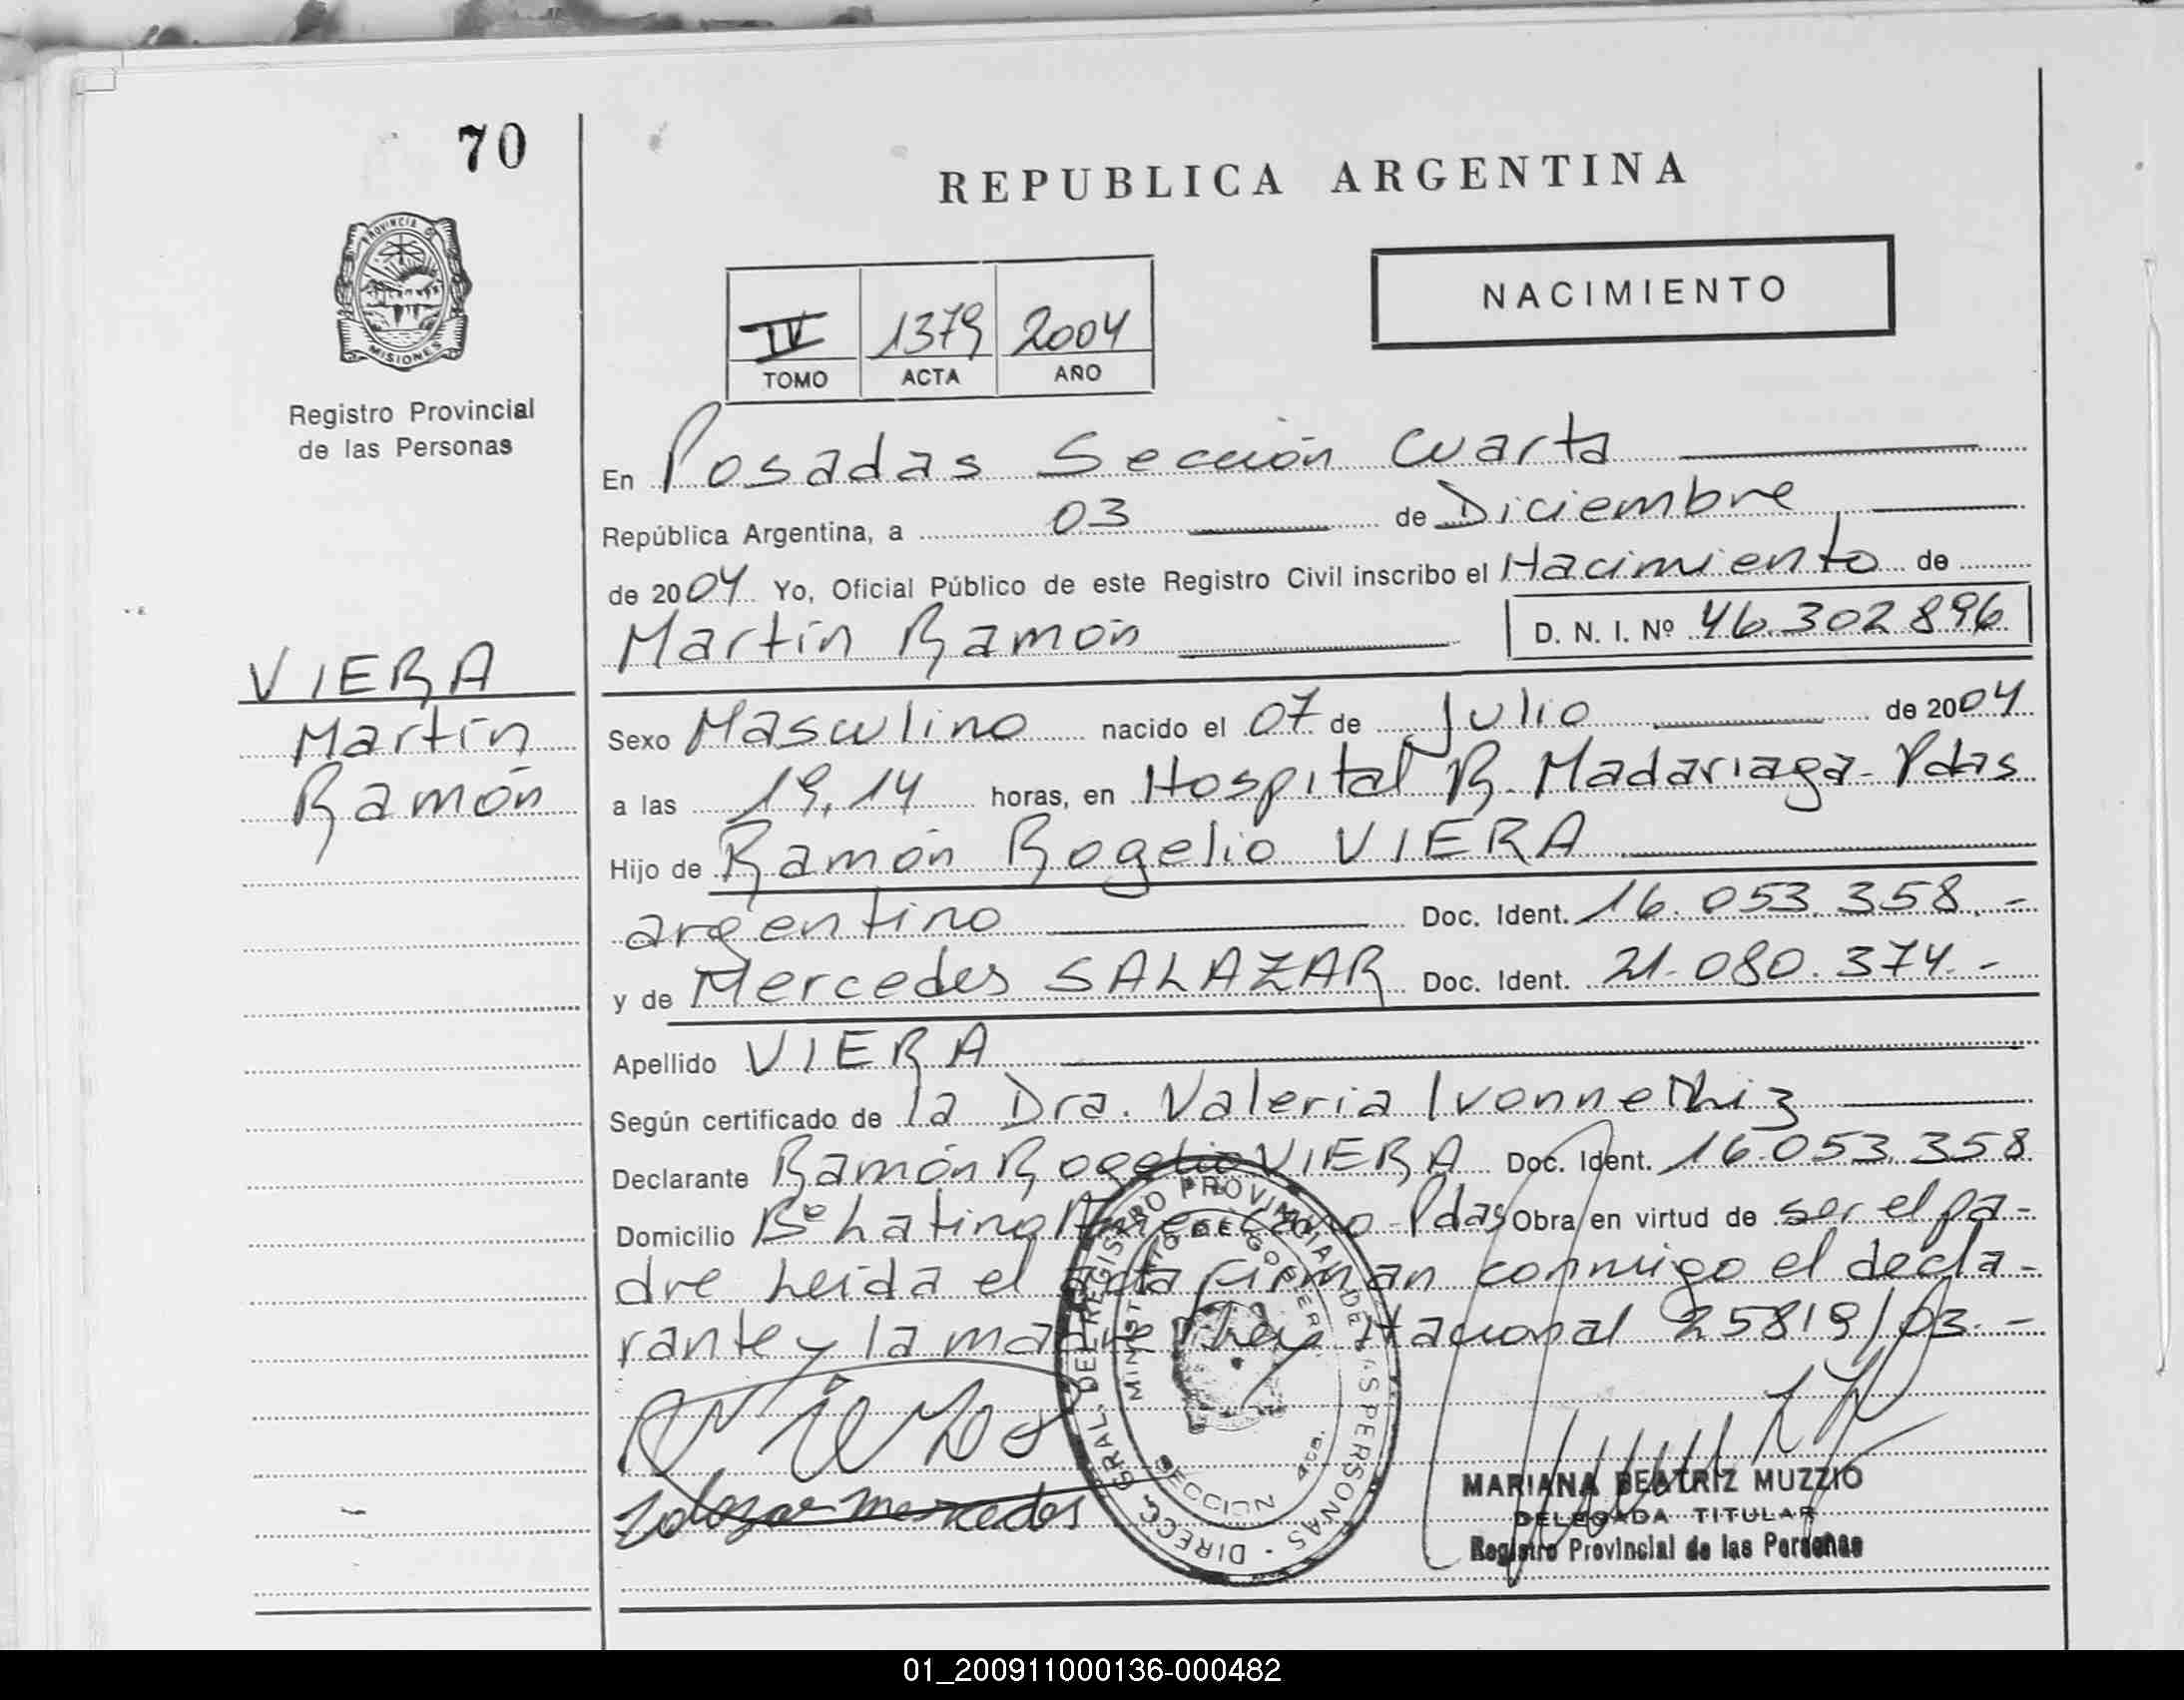 70
REPUBLICA ARGENTINA
PROVINCIA D
MISIONES
Registro Provincial
de las Personas
NACIMIENTO
IV 1379 2004
TOMO ACTA AÑO
En Posadas Sección Cuarta
República Argentina, a 03 de Diciembre
de 2004 Yo, Oficial Público de este Registro Civil inscribo el Nacimiento de
Martín Ramón D. N. I. Nº 46.302896
VIERA
Martín
Ramón
Sexo Masculino nacido el 07 de Julio de 2004
a las 19,14 horas, en Hospital R. Madariaga - Pdas
Hijo de Ramón Rogelio VIERA
argentino Doc. Ident. 16.053.358.-
y de Mercedes SALAZAR Doc. Ident. 21.080.374.-
Apellido VIERA
Según certificado de la Dra. Valeria Ivonne
Declarante Ramón Rogelio VIERA Doc. Ident. 16.053.358
Domicilio Bº Latino Americano - Pdas Obra en virtud de ser el pa-
dre Leida el acta firman conmigo el decla-
rante y la madre Ley Nacional 25819/03.-
Salazar Mercedes
DIRECC. GRAL. DEL REGISTRO PROVINCIAL DE LAS PERSONAS
MINIST DE GOBIER
SECCION 4ta.
MARIANA BEATRIZ MUZZIO
DELEGADA TITULAR
Registro Provincial de las Personas
01_200911000136-000482